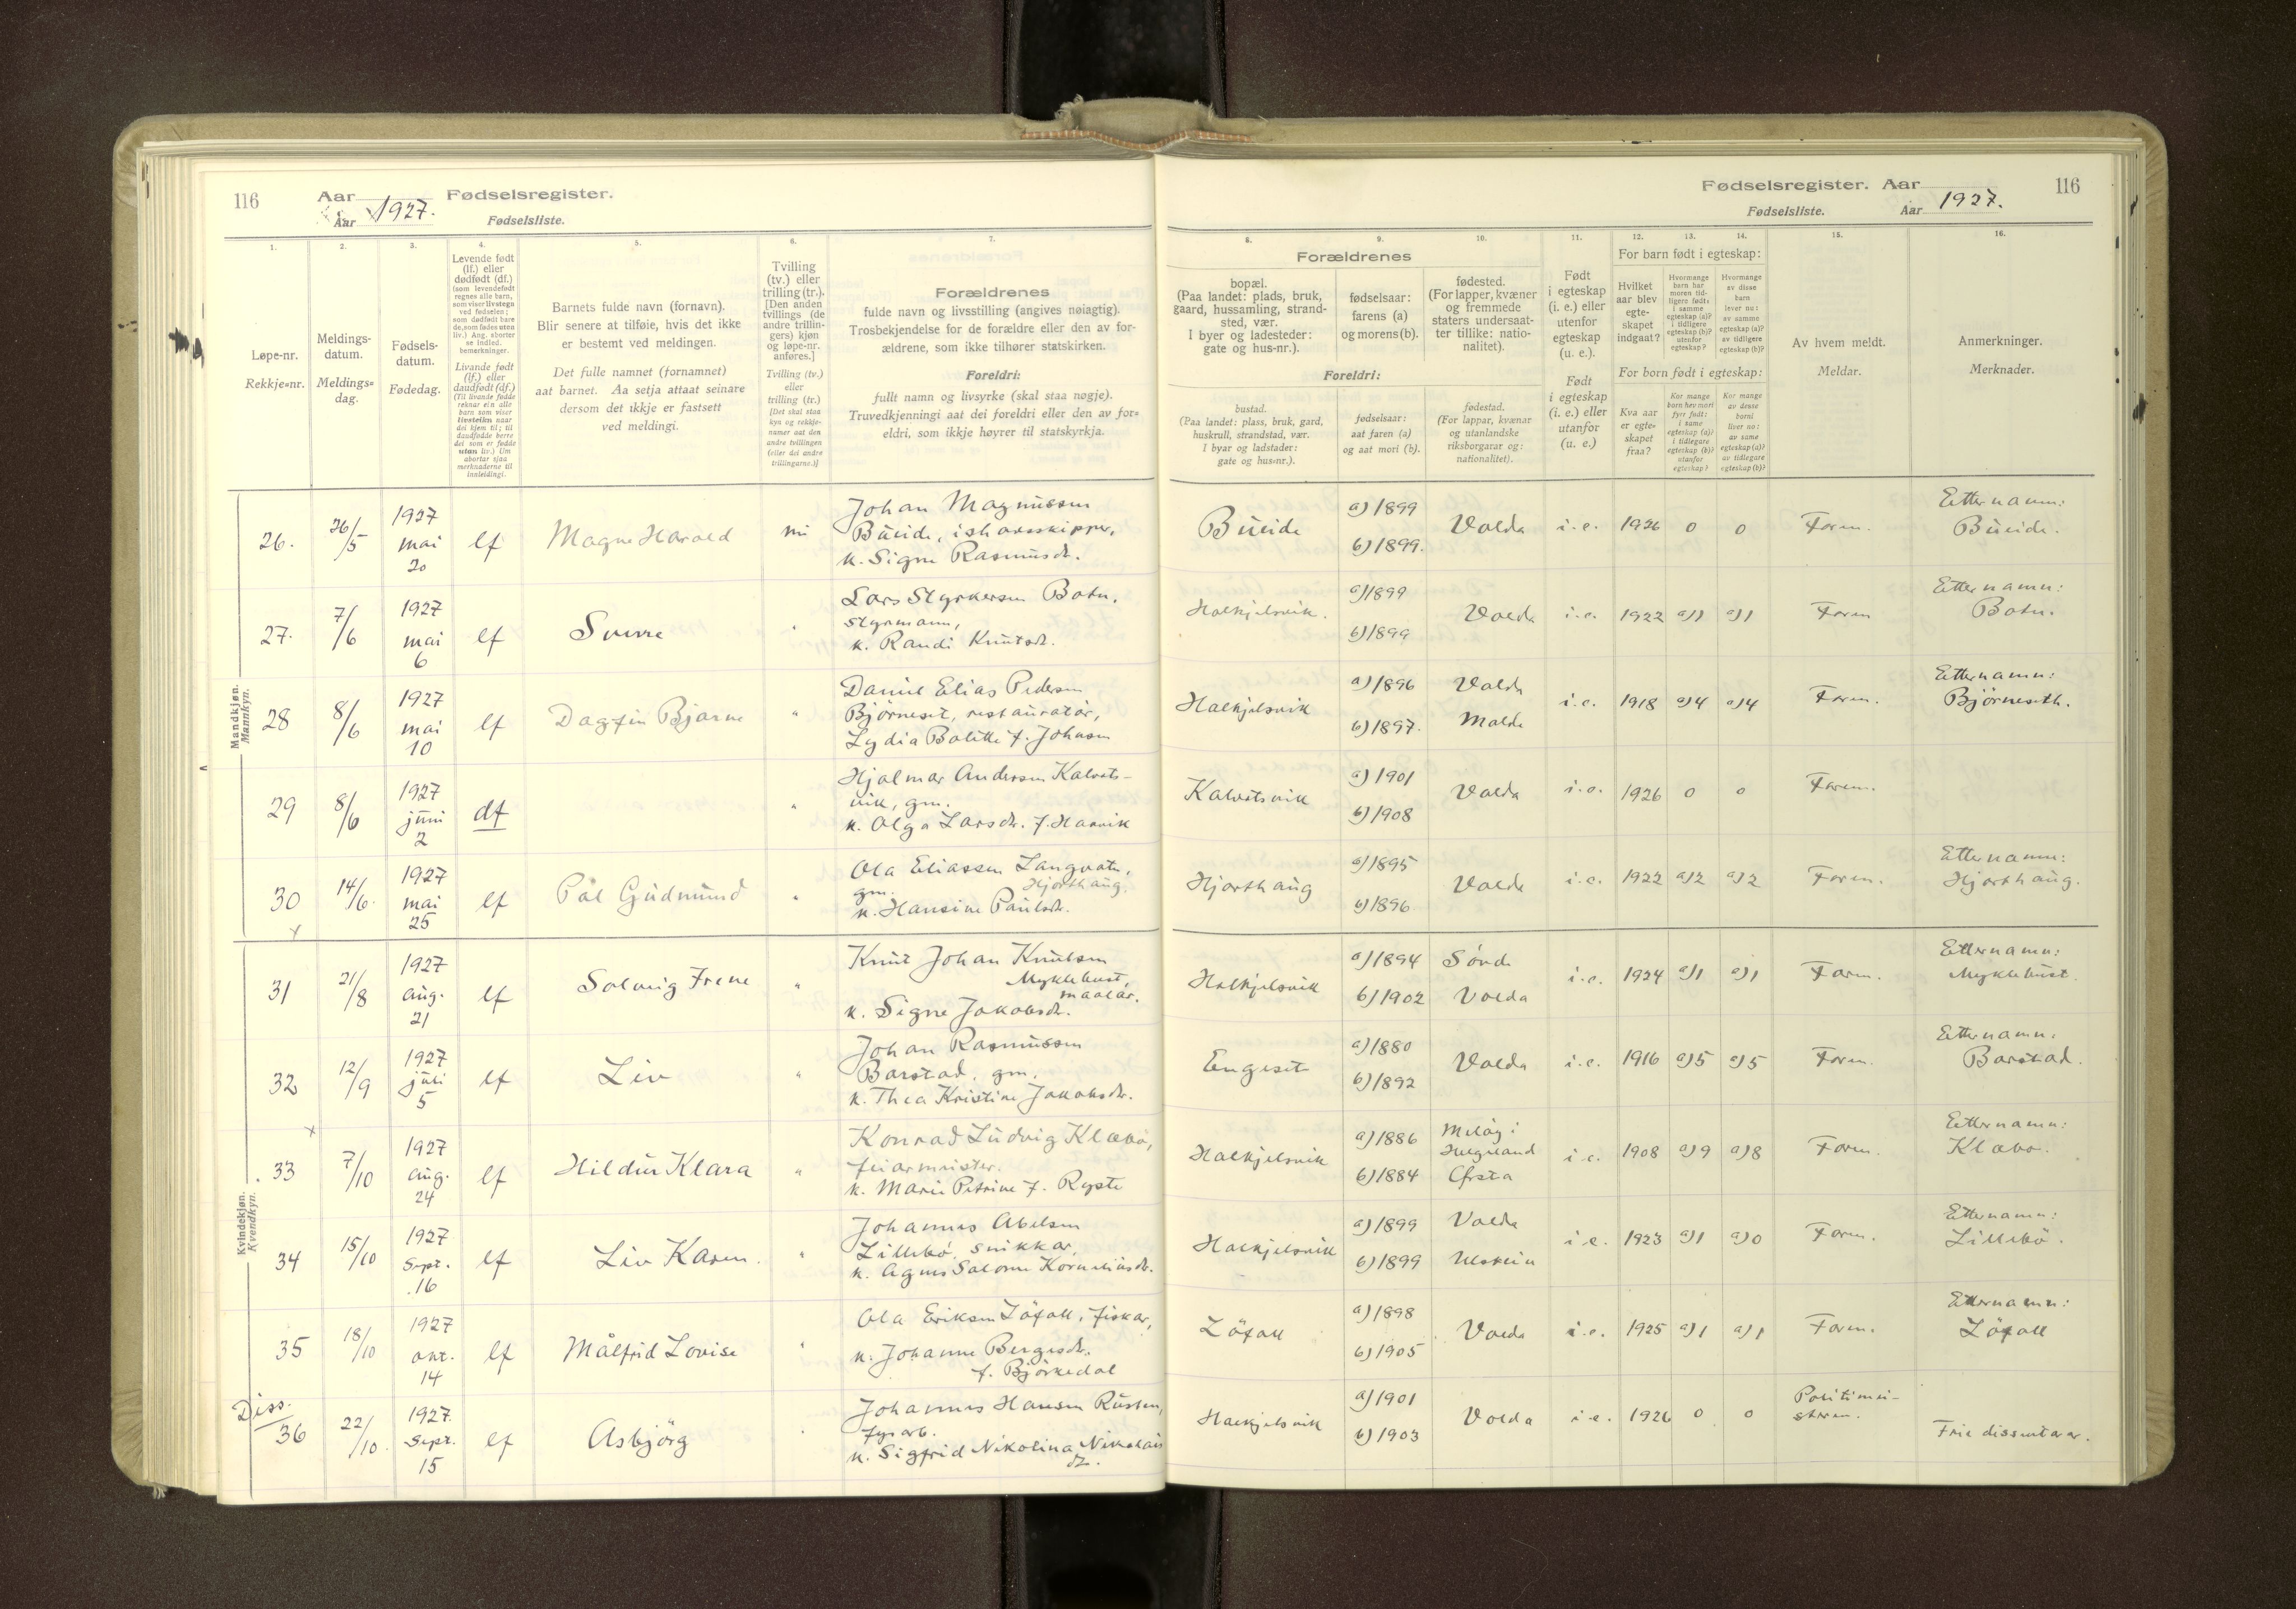 116
Aar Fødselsregister.
Aar 1927.
Fødselsliste.
1.
2.
3.
4.
5.
6.
7.
Løpe-nr.
Rekkje=nr.
Meldings-
datum.
Meldings=
dag.
Fødsels-
datum.
Fødedag.
Levende født
(lf.) eller
dødfødt (df.)
(som levendefødt
regnes alle barn,
som viser livstegn
ved fødselen;
som dødfødt bare
de, som fødes uten
liv.) Ang. aborter
se indled.
bemerkninger.
Livande født
(lf.) eller
daudfødt (df.)
(Til livande fødde
reknar ein alle
barn som viser
livsteikn naar
dei kjem til; til
daudfødde berre
dei som er fødde
utan liv.) Um
abortar sjaa
merknaderne til
innleidingi.
Barnets fulde navn (fornavn).
Blir senere at tilføie, hvis det ikke
er bestemt ved meldingen.
Det fulle namnet (fornamnet)
aat barnet. Aa setja attaat seinare
dersom det ikkje er fastsett
ved meldingi.
Tvilling
(tv.) eller
trilling (tr.).
[Den anden
tvillings (de
andre trillin-
gers) kjøn
og løpe-nr.
anføres.]
Tvilling (tv.)
eller
trilling (tr.)
[Det skal staa
kyn og rekkje-
numer aat den
andre tvillingen
(eller dei andre
trillingarne.)]
Forældrenes
fulde navn og livsstilling (angives nøiagtig).
Trosbekjendelse for de forældre eller den av for-
ældrene, som ikke tilhører statskirken.
Foreldri:
fullt namn og livsyrke (skal staa nøgje).
Truvedkjenningi aat dei foreldri eller den av for=
eldri, som ikkje høyrer til statskyrkja.
Mandkjøn.
Mannkyn.
26. 26/5 1927 mai 20 lf Magne Harald nei
Johan Magnussen
Bueide, ishavsskipper,
k. Signe Rasmusdr.
27. 7/6 1927 mai 6 lf Sverre "
Lars Styrkersen Botn,
styrmann,
k. Randi Knutsdr.
28 8/6 1927 mai 10 lf Dagfin Bjarne "
Daniel Elias Pedersen
Björneset, restauratör,
Lydia Bolette f. Johnsen
29 8/6 1927 juni 2 df "
Hjalmar Andersen Kalvats-
vik, gm.
k. Olga Larsdr. f. Haavik
30 14/6 1927 mai 25 lf Pål Gudmund "
Ola Eliassen Langvatn,
gm. Hjorthaug.
k. Hansine Paulsdr.
Kvindekjøn.
Kvendkyn.
31 21/8 1927 aug. 21 lf Solveig Irene "
Knut Johan Knutsen
Myklebust,
maalar.
k. Signe Jakobsdr.
32 12/9 1927 juli 5 lf Liv "
Johan Rasmussen
Barstad, gm.
k. Thea Kristine Jakobsdr.
33 7/10 1927 aug. 24 lf Hildur Klara "
Konrad Ludvig Klæbo,
feiarmeister.
k. Marie Petrine f. Ryste
34 15/10 1927 Sept. 16 lf Liv Karen. "
Johannes Abelsen
Lillebö, snikkar,
k. Agnes Salome Korneliusdr.
35 18/10 1927 okt. 14 lf Målfrid Lovise "
Ola Eriksen Löfoll, fiskar,
k. Johanne Bergesdr.
f. Björkedal
Diss.
36 22/10 1927. Sept. 15 lf Asbjörg
Johannes Hansen Rusten,
fys arb.
k. Sigfrid Nikolina Nikolais
dr.
Fødselsregister. Aar 116
Fødselsliste. Aar 1927.
8.
9.
10.
11.
12.
13.
14.
15.
16.
Forældrenes
bopæl.
(Paa landet: plads, bruk,
gaard, hussamling, strand-
sted, vær.
I byer og ladesteder:
gate og hus-nr.).
fødselsaar:
farens (a)
og morens (b).
fødested.
(For lapper, kvæner
og fremmede
staters undersaat-
ter tillike: natio-
nalitet).
Foreldri:
bustad.
(Paa landet: plass, bruk, gard,
huskrull, strandstad, vær.
I byar og ladstader:
gate og hus=nr.).
fødselsaar:
aat faren (a)
og aat mori (b).
fødestad.
(For lappar, kvænar
og utanlandske
riksborgarar og:
nationalitet).
Født
i egteskap
(i. e.) eller
utenfor
egteskap
(u. e.).
Født
i egteskap
(i. e.) eller
utanfor
(u. e.)
For barn født i egteskap:
Hvilket
aar blev
egte-
skapet
indgaat?
Hvormange
barn har
moren tid-
ligere født:
i samme
egteskap (a)?
i tidligere
egteskap (b)?
utenfor
egteskap?
Hvormange
av disse
barn
lever nu:
av samme
egteskap (a)?
av tidligere
egteskap (b)?
For born født i egteskap:
Kva aar
er egte-
skapet
fraa?
Kor mange
born hev mori
fyrr født:
i same
egteskap (a)?
i tidlegare
egteskap (b)?
utanfor
egteskap?
Kor mange
av desse
borni
liver no:
av same
egteskap (a)?
av tidlegare
egteskap (b)?
Av hvem meldt.
Meldar.
Anmerkninger.
Merknader.
Bueide a) 1899 b) 1899. Volda i.e. 1926 0 0 Foren. Etternamn: Bueide.
Halkjelsvik. a) 1899 b) 1899 Volda i.e. 1922 a) 1 a) 1 Foren Etternamn: Botn.
Halkjelsvik a) 1896 b) 1897. Volda Molde i.e. 1918 a) 4 a) 4 Foren. Etternamn: Björneseth.
Kalvatsvik a) 1901 b) 1908 Volda i.e. 1926 0 0 Foren.
Hjorthaug a) 1895 b) 1896 Volda i.e. 1922 a) 2 a) 2 Foren. Etternamn: Hjorthaug.
Halkjelsvik a) 1894 b) 1902 Sövde Volda i.e. 1924 a) 1 a) 1 Foren. Etternamn: Myklebust.
Engeset a) 1880 b) 1892 Volda i.e. 1916 a) 5 a) 5 Foren. Etternamn: Barstad.
Halkjelsvik a) 1886 b) 1884 Helgeland Ørsta i.e. 1908 a) 9 a) 8 Foren. Etternamn: Klæbo.
Halkjelsvik a) 1899 b) 1899 Volda Ulstein i.e. 1923 a) 1 a) 0 Foren. Etternamn: Lillebö.
Löfoll a) 1898 b) 1905 Volda i.e. 1925 a) 1 a) 1 Foren. Etternamn: Löfoll
Halkjelsvik a) 1901 b) 1903 Volda i.e. 1926 0 0 Politimei-
steren. Frie dissentarar.